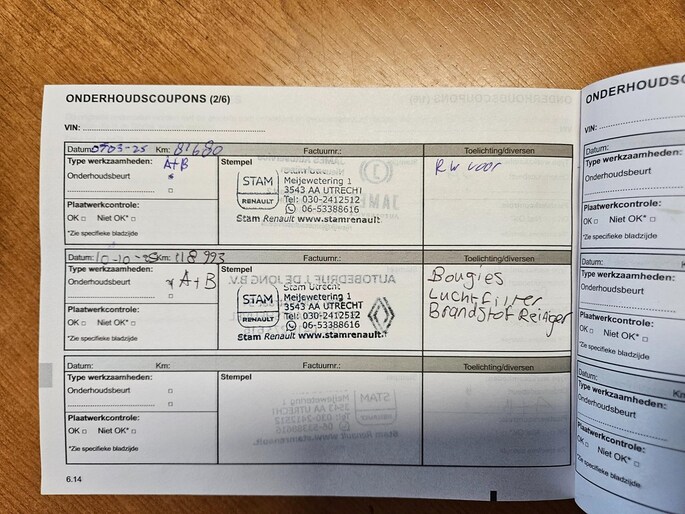 ONDERHOUDSCOUPONS (2/6)
VIN:
Datum: Km: 81680 Factuurnr.: Toelichting/diversen
Type werkzaamheden: A+B
Stempel
RW voor
Onderhoudsbeurt
STAM
RENAULT
Meijewetering 1
3543 AA UTRECHT
Tel: 030-2412512
06-53388616
Stam Renault www.stamrenault.
Plaatwerkcontrole:
OK Niet OK*
*Zie specifieke bladzijde
Datum: 10-10-25 Km: 118993 Factuurnr.: Toelichting/diversen
Type werkzaamheden:
Stempel
Onderhoudsbeurt A+B
Stam Utrecht
STAM
RENAULT
Meijewetering 1
3543 AA UTRECHT
Tel: 030-2412512
06-53388616
Stam Renault www.stamrenault.
Bougies
Luchtfilter
Brandstof Reiniger
Plaatwerkcontrole:
OK Niet OK*
*Zie specifieke bladzijde
Datum: Km: Factuurnr.: Toelichting/diversen
Type werkzaamheden:
Stempel
Onderhoudsbeurt
Plaatwerkcontrole:
OK Niet OK*
*Zie specifieke bladzijde
6.14
ONDERHOUDSC
VIN:
Datum:
Type werkzaamheden:
Onderhoudsbeurt
Plaatwerkcontrole:
OK Niet OK*
*Zie specifieke bladzijde
Datum:
Type werkzaamheden:
Onderhoudsbeurt
Plaatwerkcontrole:
OK Niet OK*
*Zie specifieke bladzijde
Datum:
Type werkzaamheden:
Onderhoudsbeurt
Plaatwerkcontrole:
OK Niet OK*
*Zie specifieke bladzijde